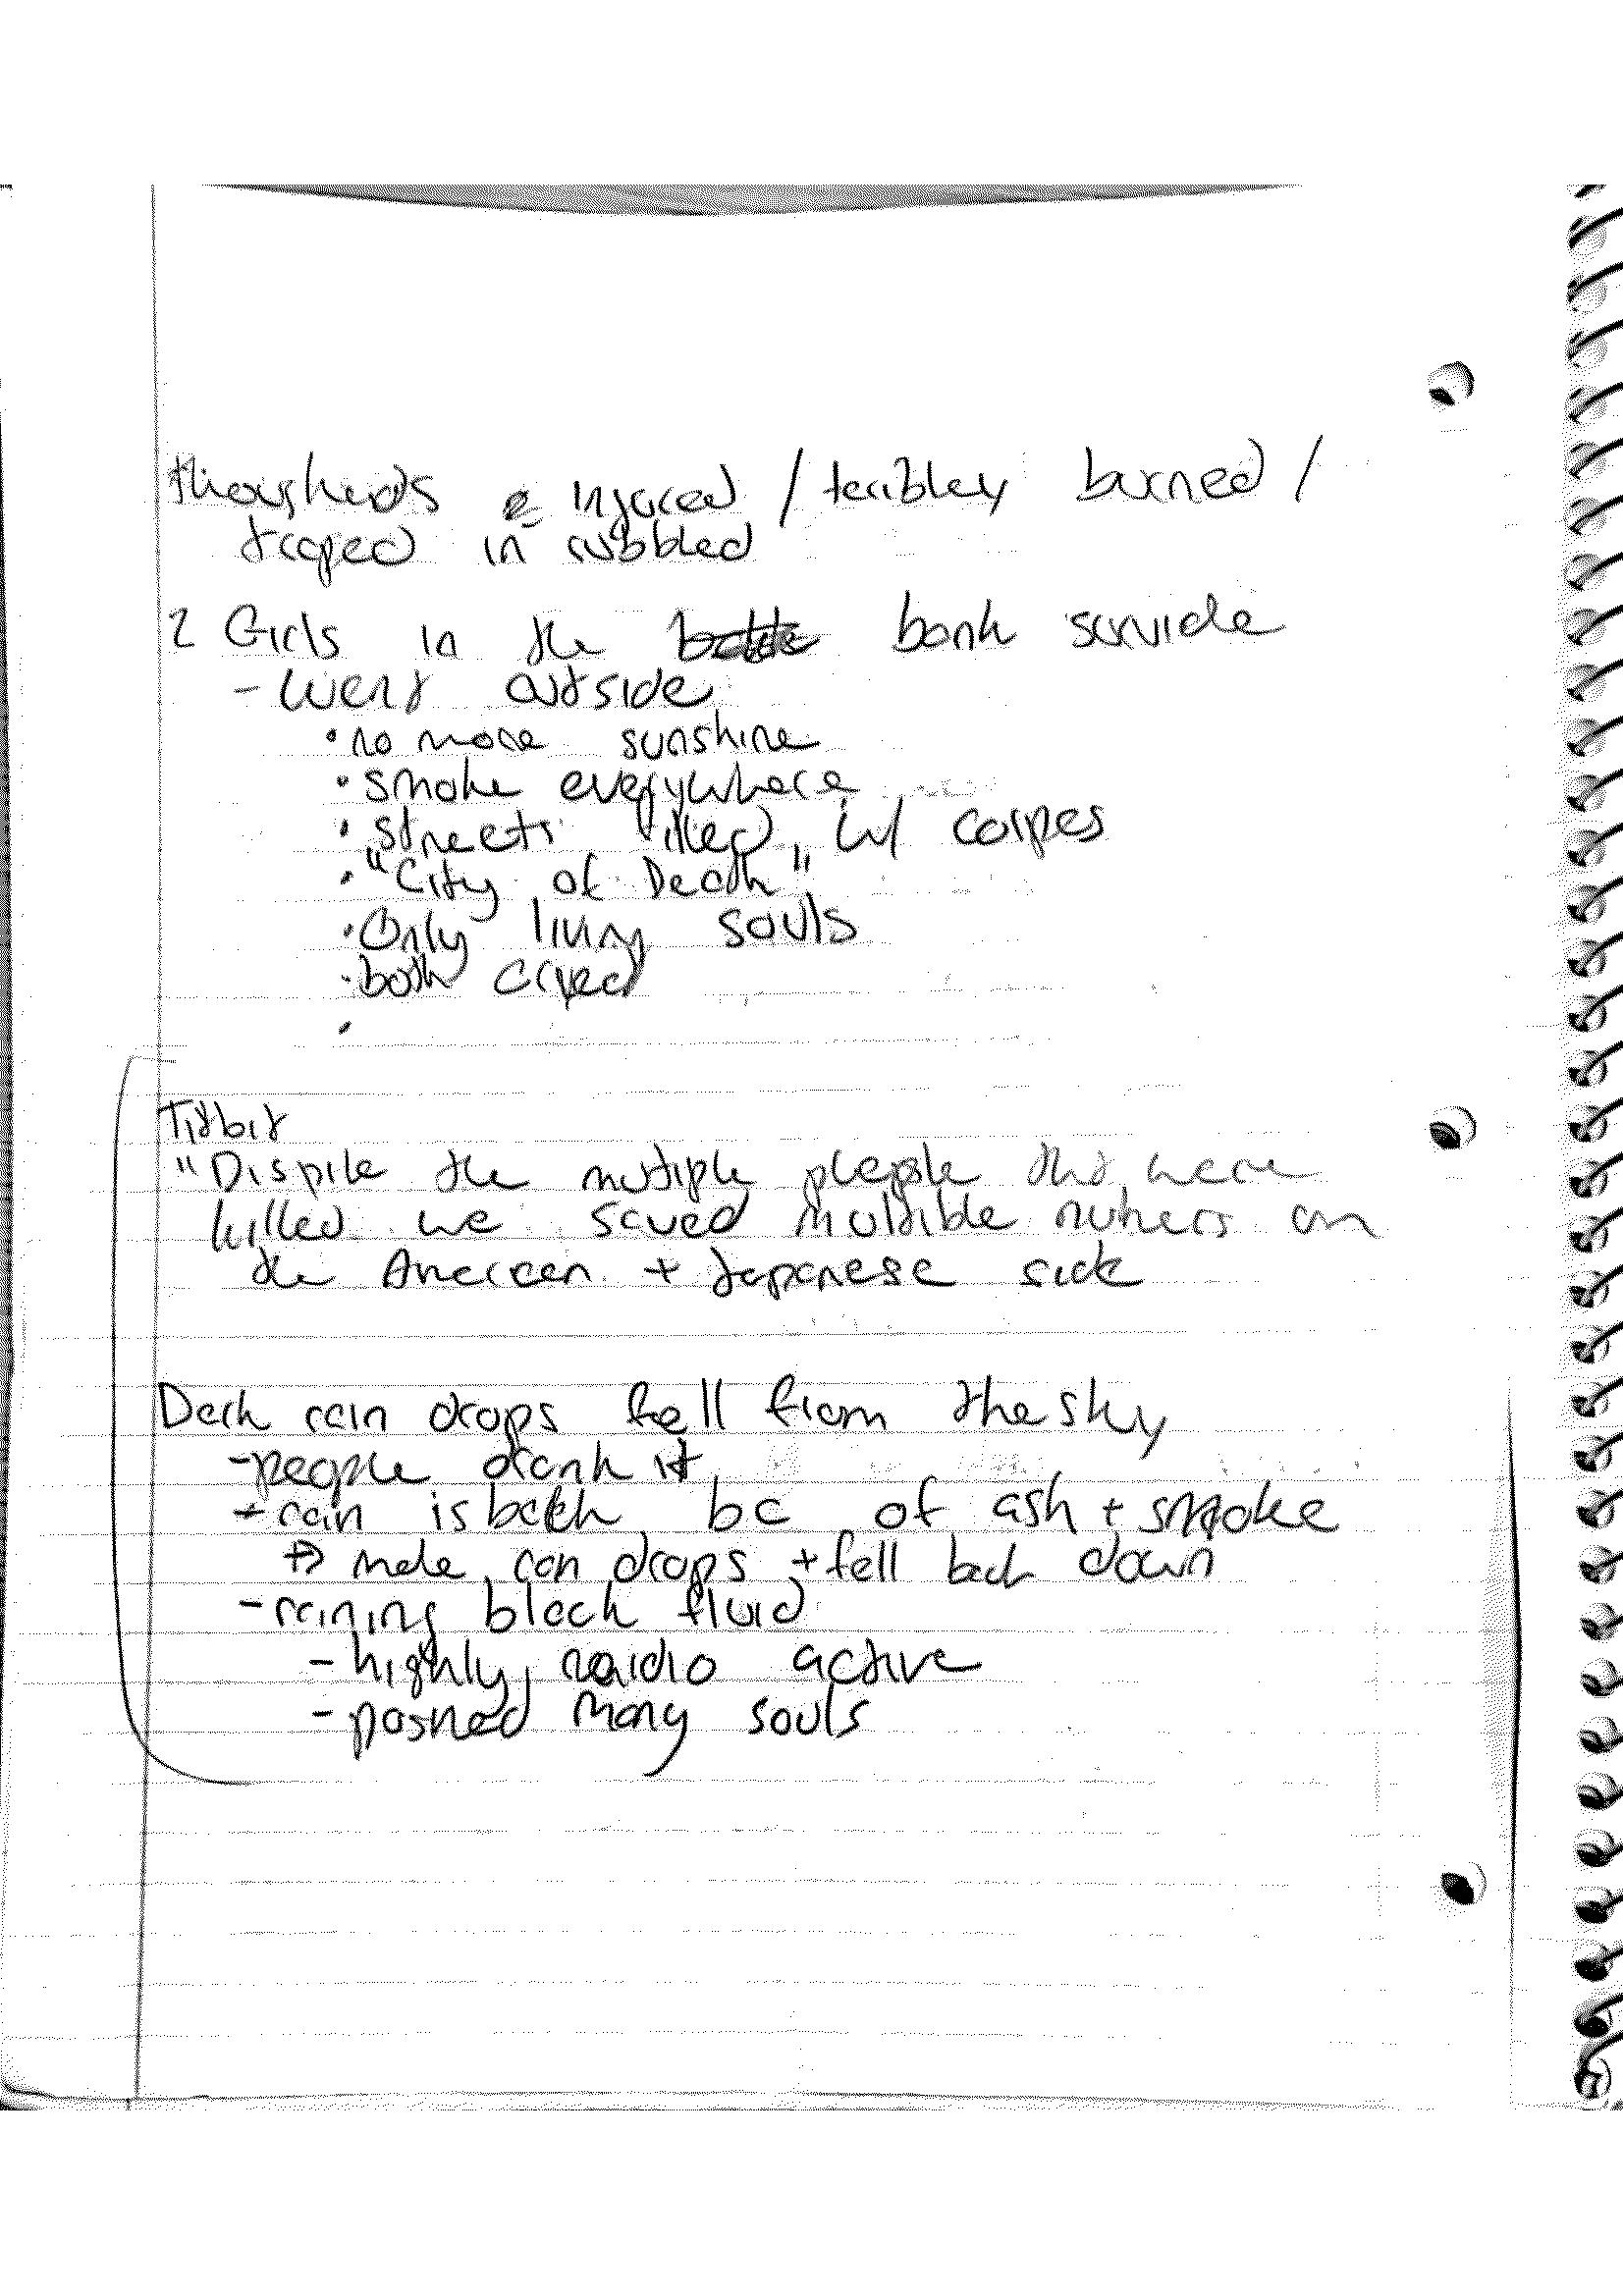 thoushends injured / terribley burned /
traped in rubbled
2 Girls in the bank survide
- went outside
• no more sunshine
• smoke everywhere
• streets filled w/ corpes
• "City of Death"
• Only living souls
• both cryed
•
Titbit
"Dispite the mutiple pleople that were
killed we saved multible numers on
the American + Japanese side
Dark rain drops fell from the sky
- people drank it
- rain is bc of ash + smoke
→ made rain drops + fell back down
- raining black fluid
- highly raidio active
- posned many souls